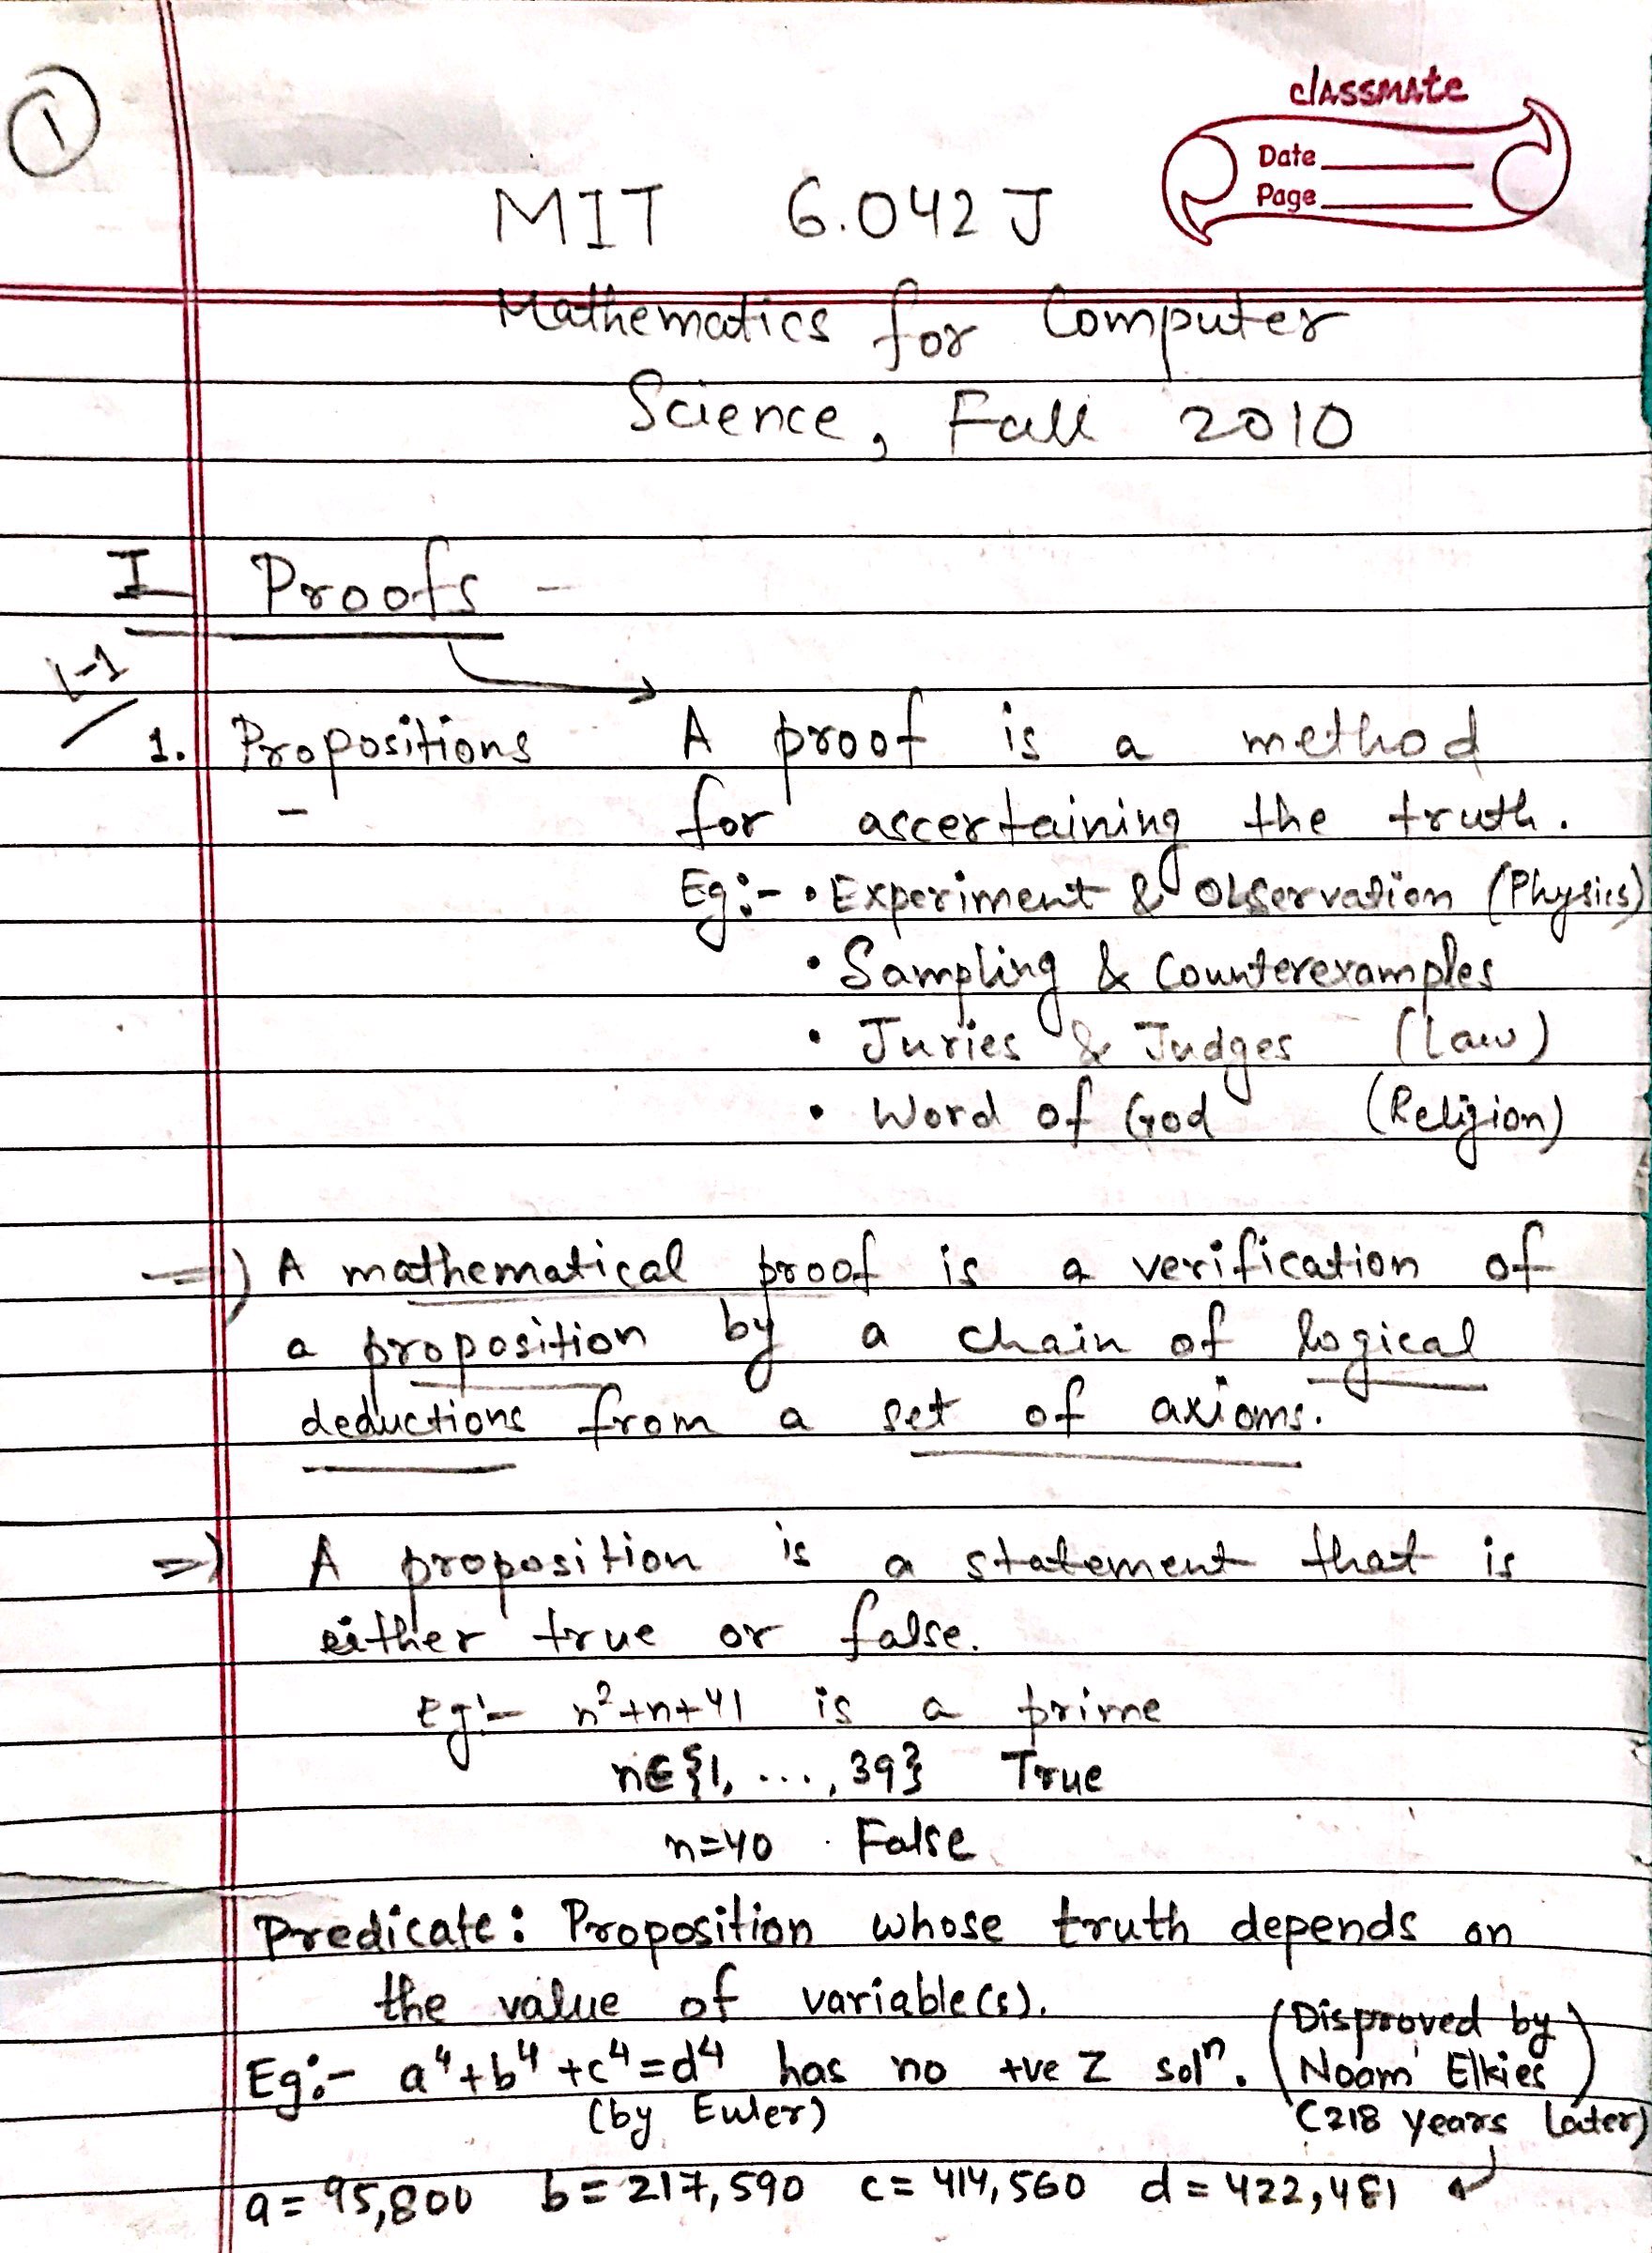 ①
classmate
Date
Page
MIT 6.042 J
Mathematics for Computer
Science, Fall 2010
I Proofs -
L-1
1. Propositions -
A proof is a method
for ascertaining the truth.
Eg:- • Experiment & Observation (Physics)
• Sampling & Counterexamples
• Juries & Judges (Law)
• Word of God (Religion)
=) A mathematical proof is a verification of
a proposition by a chain of logical
deductions from a set of axioms.
=) A proposition is a statement that is
either true or false.
Eg:- n²+n+41 is a prime
n∈{1, ..., 39} True
n=40 False
Predicate: Proposition whose truth depends on
the value of variable(s).
Eg:- a⁴+b⁴+c⁴=d⁴ has no +ve Z solⁿ. (Disproved by
(by Euler) Noam Elkies)
(218 years later)
a= 95,800 b= 217,590 c= 414,560 d= 422,481